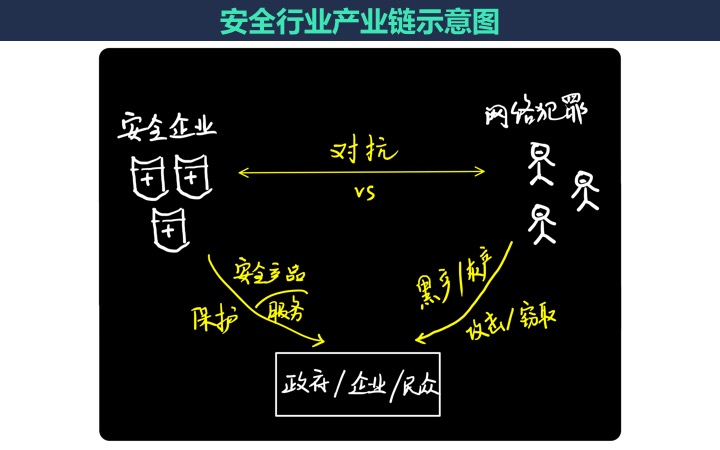 安全行业产业链示意图
安全企业
网络犯罪
对抗
vs
安全产品
服务
保护
黑产/灰产
攻击/窃取
政府/企业/民众